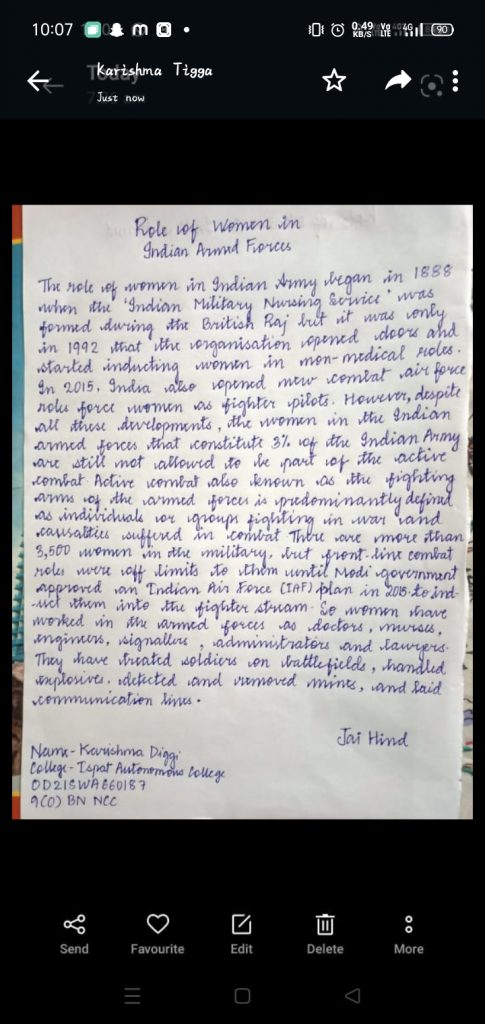 10:07
0.49 KB/S
Vo LTE
4G
90
Today
Karishma Tigga
Just now
Role of Women in
Indian Armed Forces
The role of women in Indian Army began in 1888
when the 'Indian Military Nursing Service' was
formed during the British Raj but it was only
in 1992 that the organisation opened doors and
started inducting women in non-medical roles.
In 2015, India also opened new combat air force
roles force women as fighter pilots. However, despite
all these developments, the women in the Indian
armed forces that constitute 3% of the Indian Army
are still not allowed to be part of the active
combat. Active combat also known as the fighting
arms of the armed forces is predominantly defined
as individuals or groups fighting in war and
causalities suffered in combat There are more than
3,500 women in the military, but front-line combat
roles were off limits to them until Modi government
approved an Indian Air Force (IAF) plan in 2015 to ind-
uct them into the fighter stream. So women have
worked in the armed forces as doctors, nurses,
engineers, signallers, administrators and lawyers.
They have treated soldiers on battlefields, handled
explosives, detected and removed mines, and laid
communication lines.
Jai Hind
Name- Karishma Diggi
College- Ispat Autonomous College
OD21SWA660187
9(O) BN NCC
Send
Favourite
Edit
Delete
More